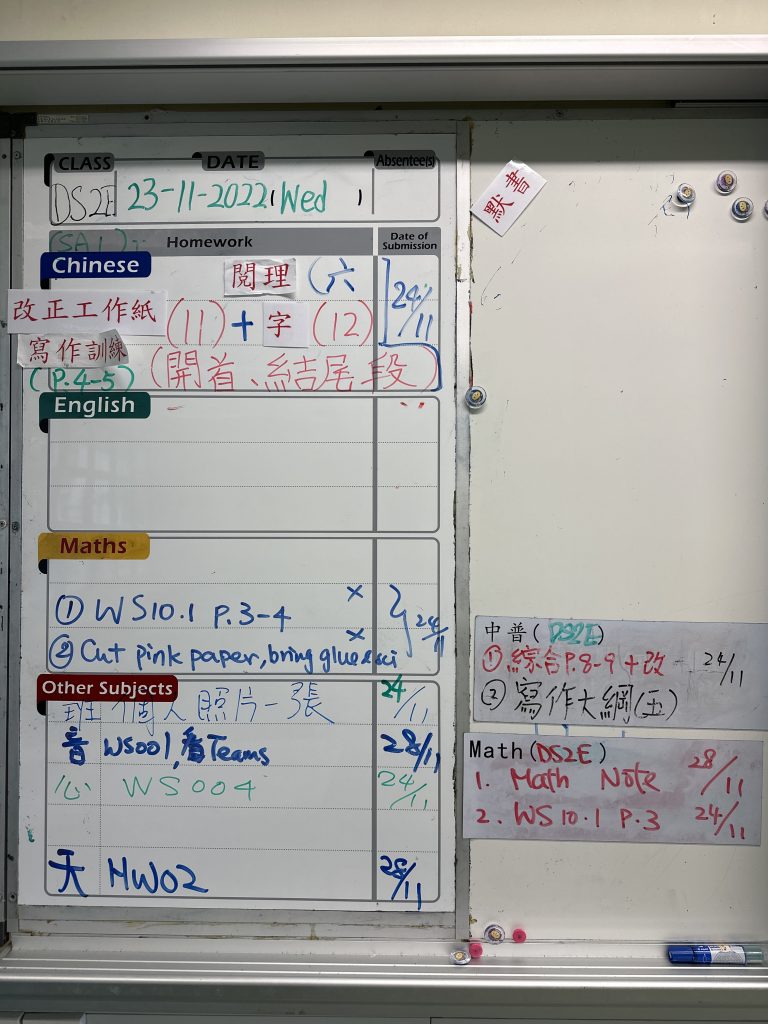 CLASS DATE Absentee(s)
DS2E 23-11-2022 (Wed)
(SA1) Homework Date of Submission
Chinese 閱理 (六
改正工作紙 (11) + 字 (12) 24/11
寫作訓練
(P.4-5) (開首、結尾段)
English
Maths
① WS10.1 P.3-4
② Cut pink paper, bring glue & sci 24/11
Other Subjects
班 個人照片一張 24/11
音 WS001, 看Teams 28/11
心 WS004 24/11
天 HW02 28/11
默書
中普(DS2E)
① 綜合P.8-9+改 24/11
② 寫作大綱(五)
Math(DS2E)
1. Math Note 28/11
2. WS10.1 P.3 24/11